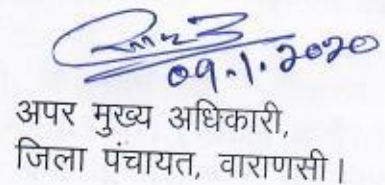 09.1.2020
अपर मुख्य अधिकारी,
जिला पंचायत, वाराणसी।